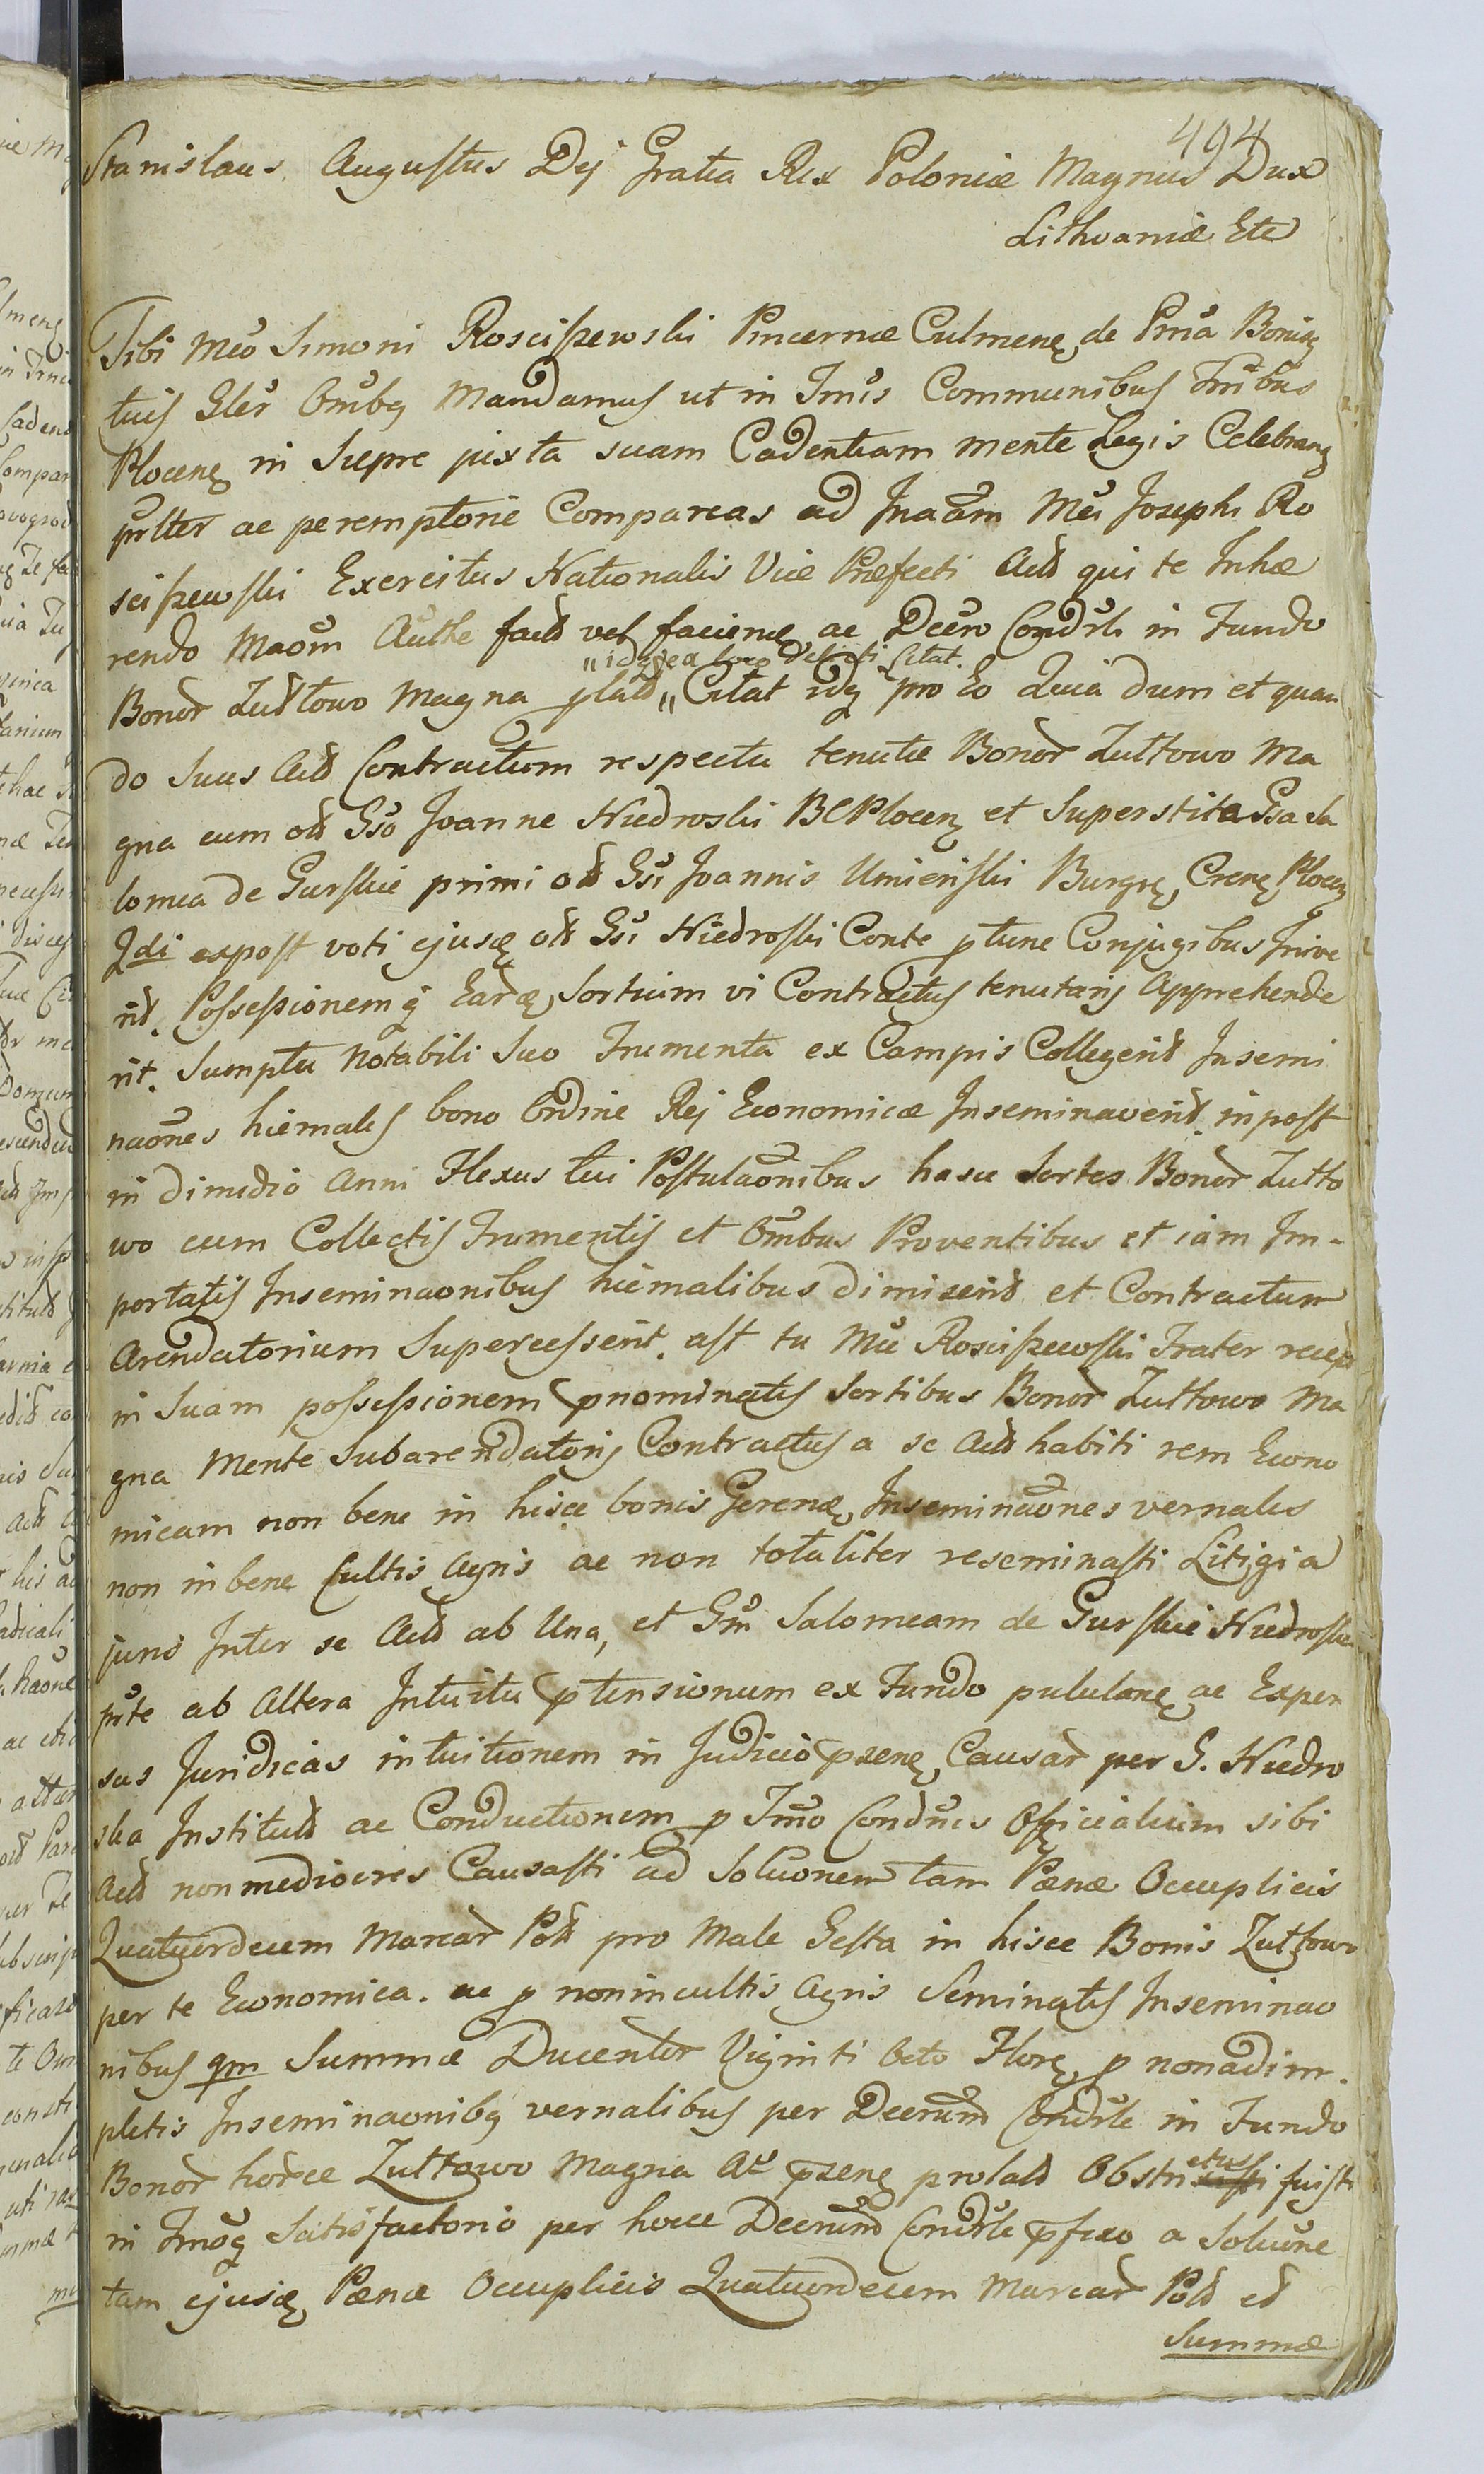 494
Stanislaus Augustus Dej Gratia Rex Poloniæ Magnus Dux
Lithvaniæ Etc
Tibi Mco Simoni Rosciszewski Pincernæ Culmenę de Prna Bonisq
tuis Gler Ombq Mandamus ut in Tmis Communibus Tmibus
Plocenę in Sierpc juxta suam Cadentiam mente Legis Celebranę
prlter ac peremptorie Compareas ad Jnãam Mci Josephi Ro
sciszewski Exercitus Nationalis Vice Præfecti Actd qui te Inhæ
rendo Maõm Authe factd vel facienę ac Decro Condrli in Fundo
"idq ea loco delicti Citat.
Bonor Zultowo Magna plato" Citat idq pro Eo Quia dum et quan
do suus Actd Contractum respectu tenutæ Bonor Zultowo Ma
gna cum olt Gso Joanne Niedroski BCPlocenę et Superstite Gsa Sa
lomea de Gurskie primi olt Gsi Joannis Umienski Burgrę Crenę Plocenę
2di expost voti ejusdę olt Gsi Niedroski Conte ptunc Conjugibus Inive
rit. Possessionemq Eardę Sortium vi Contractus tenutarij Apprehende
rit. Sumptu notabili Suo Frumenta ex Campis Collegerit Insemi
naõnes hiemales bono Ordine Rej Economicæ Inseminaverit. inpost
in dimidio Anni Flexus tui Postulaõnibus hasce Sortes Bonor Zulto
wo cum Collectis Frumentis et Ombus Proventibus et iam Im-
portatis Inseminaonibus hiemalibus dimiserit et Contractum
Arendatorium Supercessent. ast tu Mce Rosciszewski Frater recep
in Suam possessionem pnominatis Sortibus Bonor Zultowo Ma
gna Mente Subarendatorij Contractus a se Actd habiti rem Econo
micam non bene in hisce bonis Gerenę, Inseminaõnes vernales
non in bene Cultis Agris ac non totaliter reseminasti Litigia
juris Inter se Actd ab Una, et Gsm Salomeam de Gurskie Niedroska
prte ab Altera Intuitu ptensionum ex Fundo pululanę ac Expen
sas Juridicas intuitionem in Judicio pzenę Causar per G. Niedro
ska Institutd ac Conductionem p Tmo Condnis Officialium sibi
Actd non mediocres Causasti ad Soluonem tam Pænæ Occuplicis
Quatuordecem Marcar Pold pro Male Gesta in hisce Bonis Zultowo
per te Economica. ac p nonincultis Agris Seminatis Inseminao
nibus qm Summæ Ducentor Viginti Octo Florę p nonadim-
pletis Inseminaonibq vernalibus per Decrum Condrle in Fundo
Bonor horce Zultowo Magna Ac pzenę prolatd Obstrictus fuisti
in Tmoq Satisfactorio per hocce Decrum Condrle pfixo a Soluone
tam ejusdę Pænæ Occuplicis Quatuordecem Marcar Pold et
Summæ